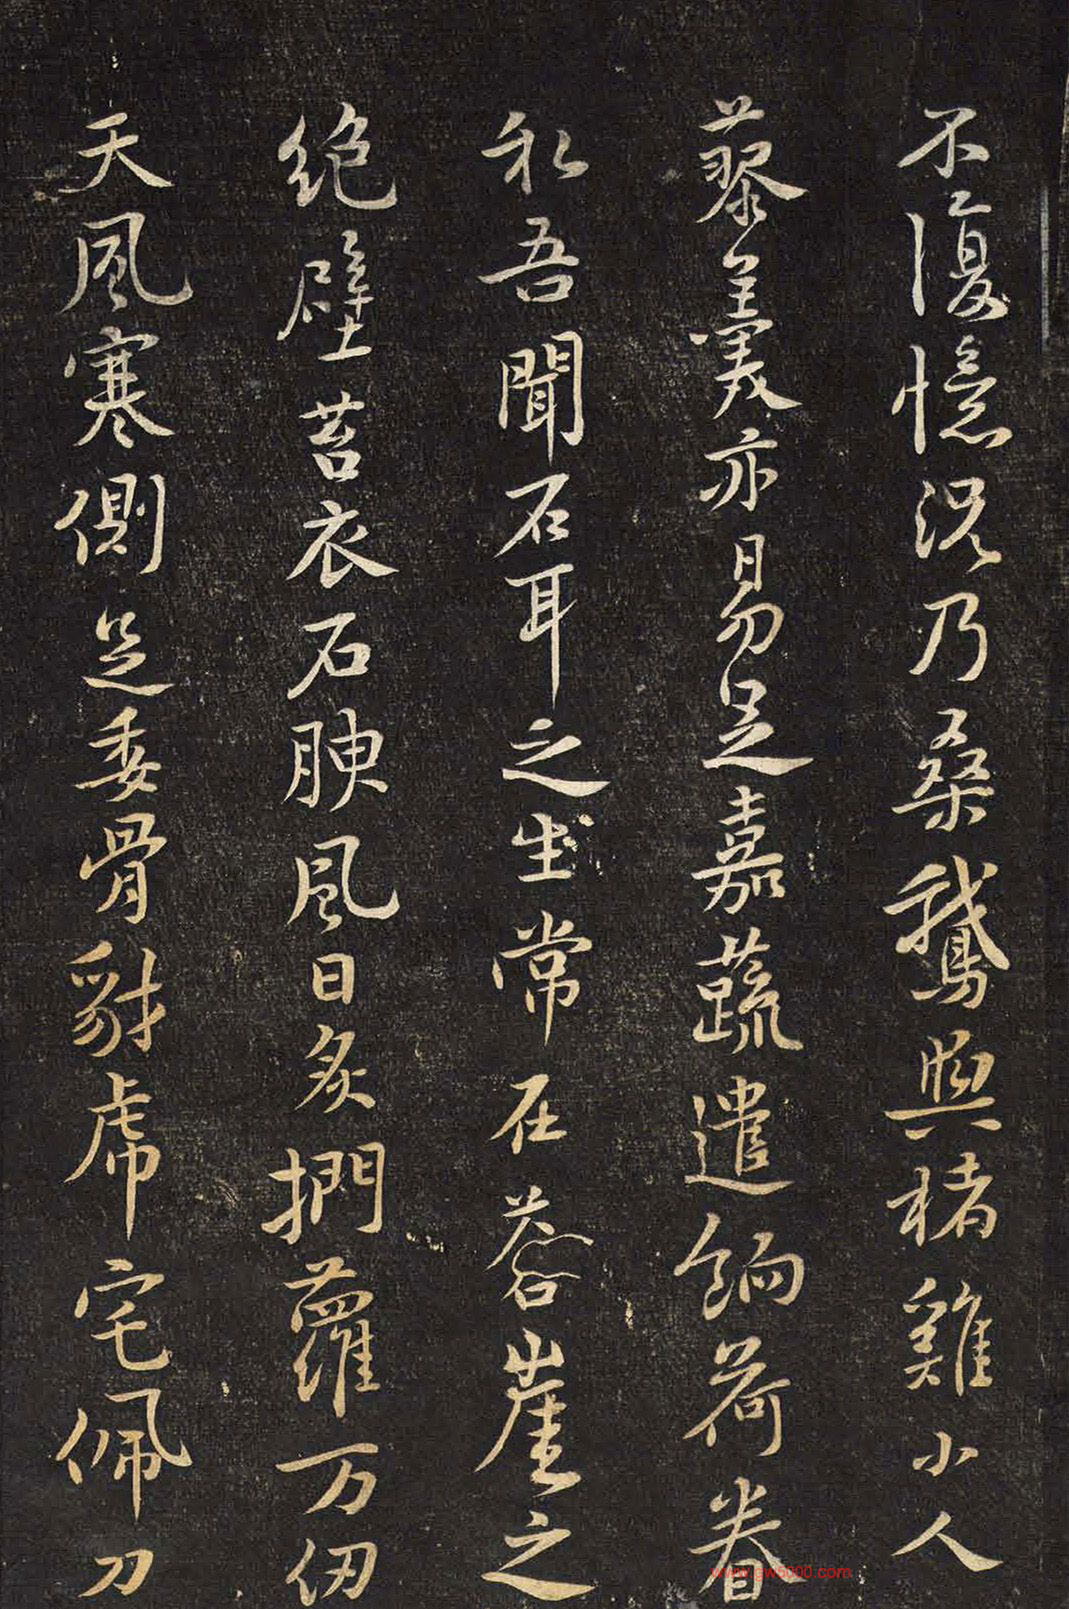 不復憶況乃桑鵝與楮雞小人
藜羹亦易足嘉蔬遣餉荷眷
私吾聞石耳之生常在蒼崖之
絶壁苔衣石腴風日炙捫蘿万仞
天風寒側足委骨豺虎宅佩刀
www.gw5000.com